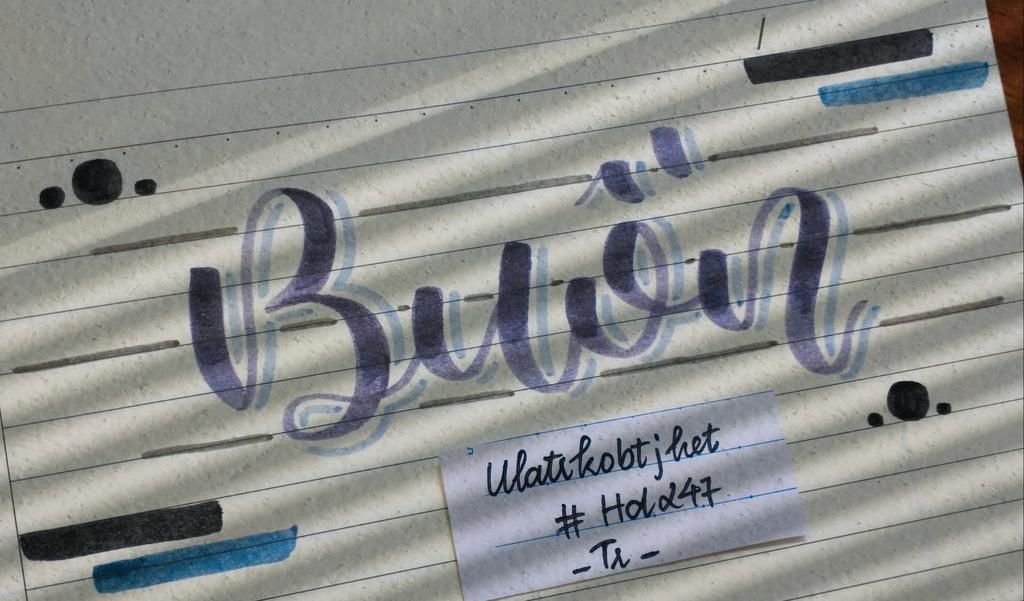 Buồn
Ulatikobtjhet
# Hdα247
- Tr -